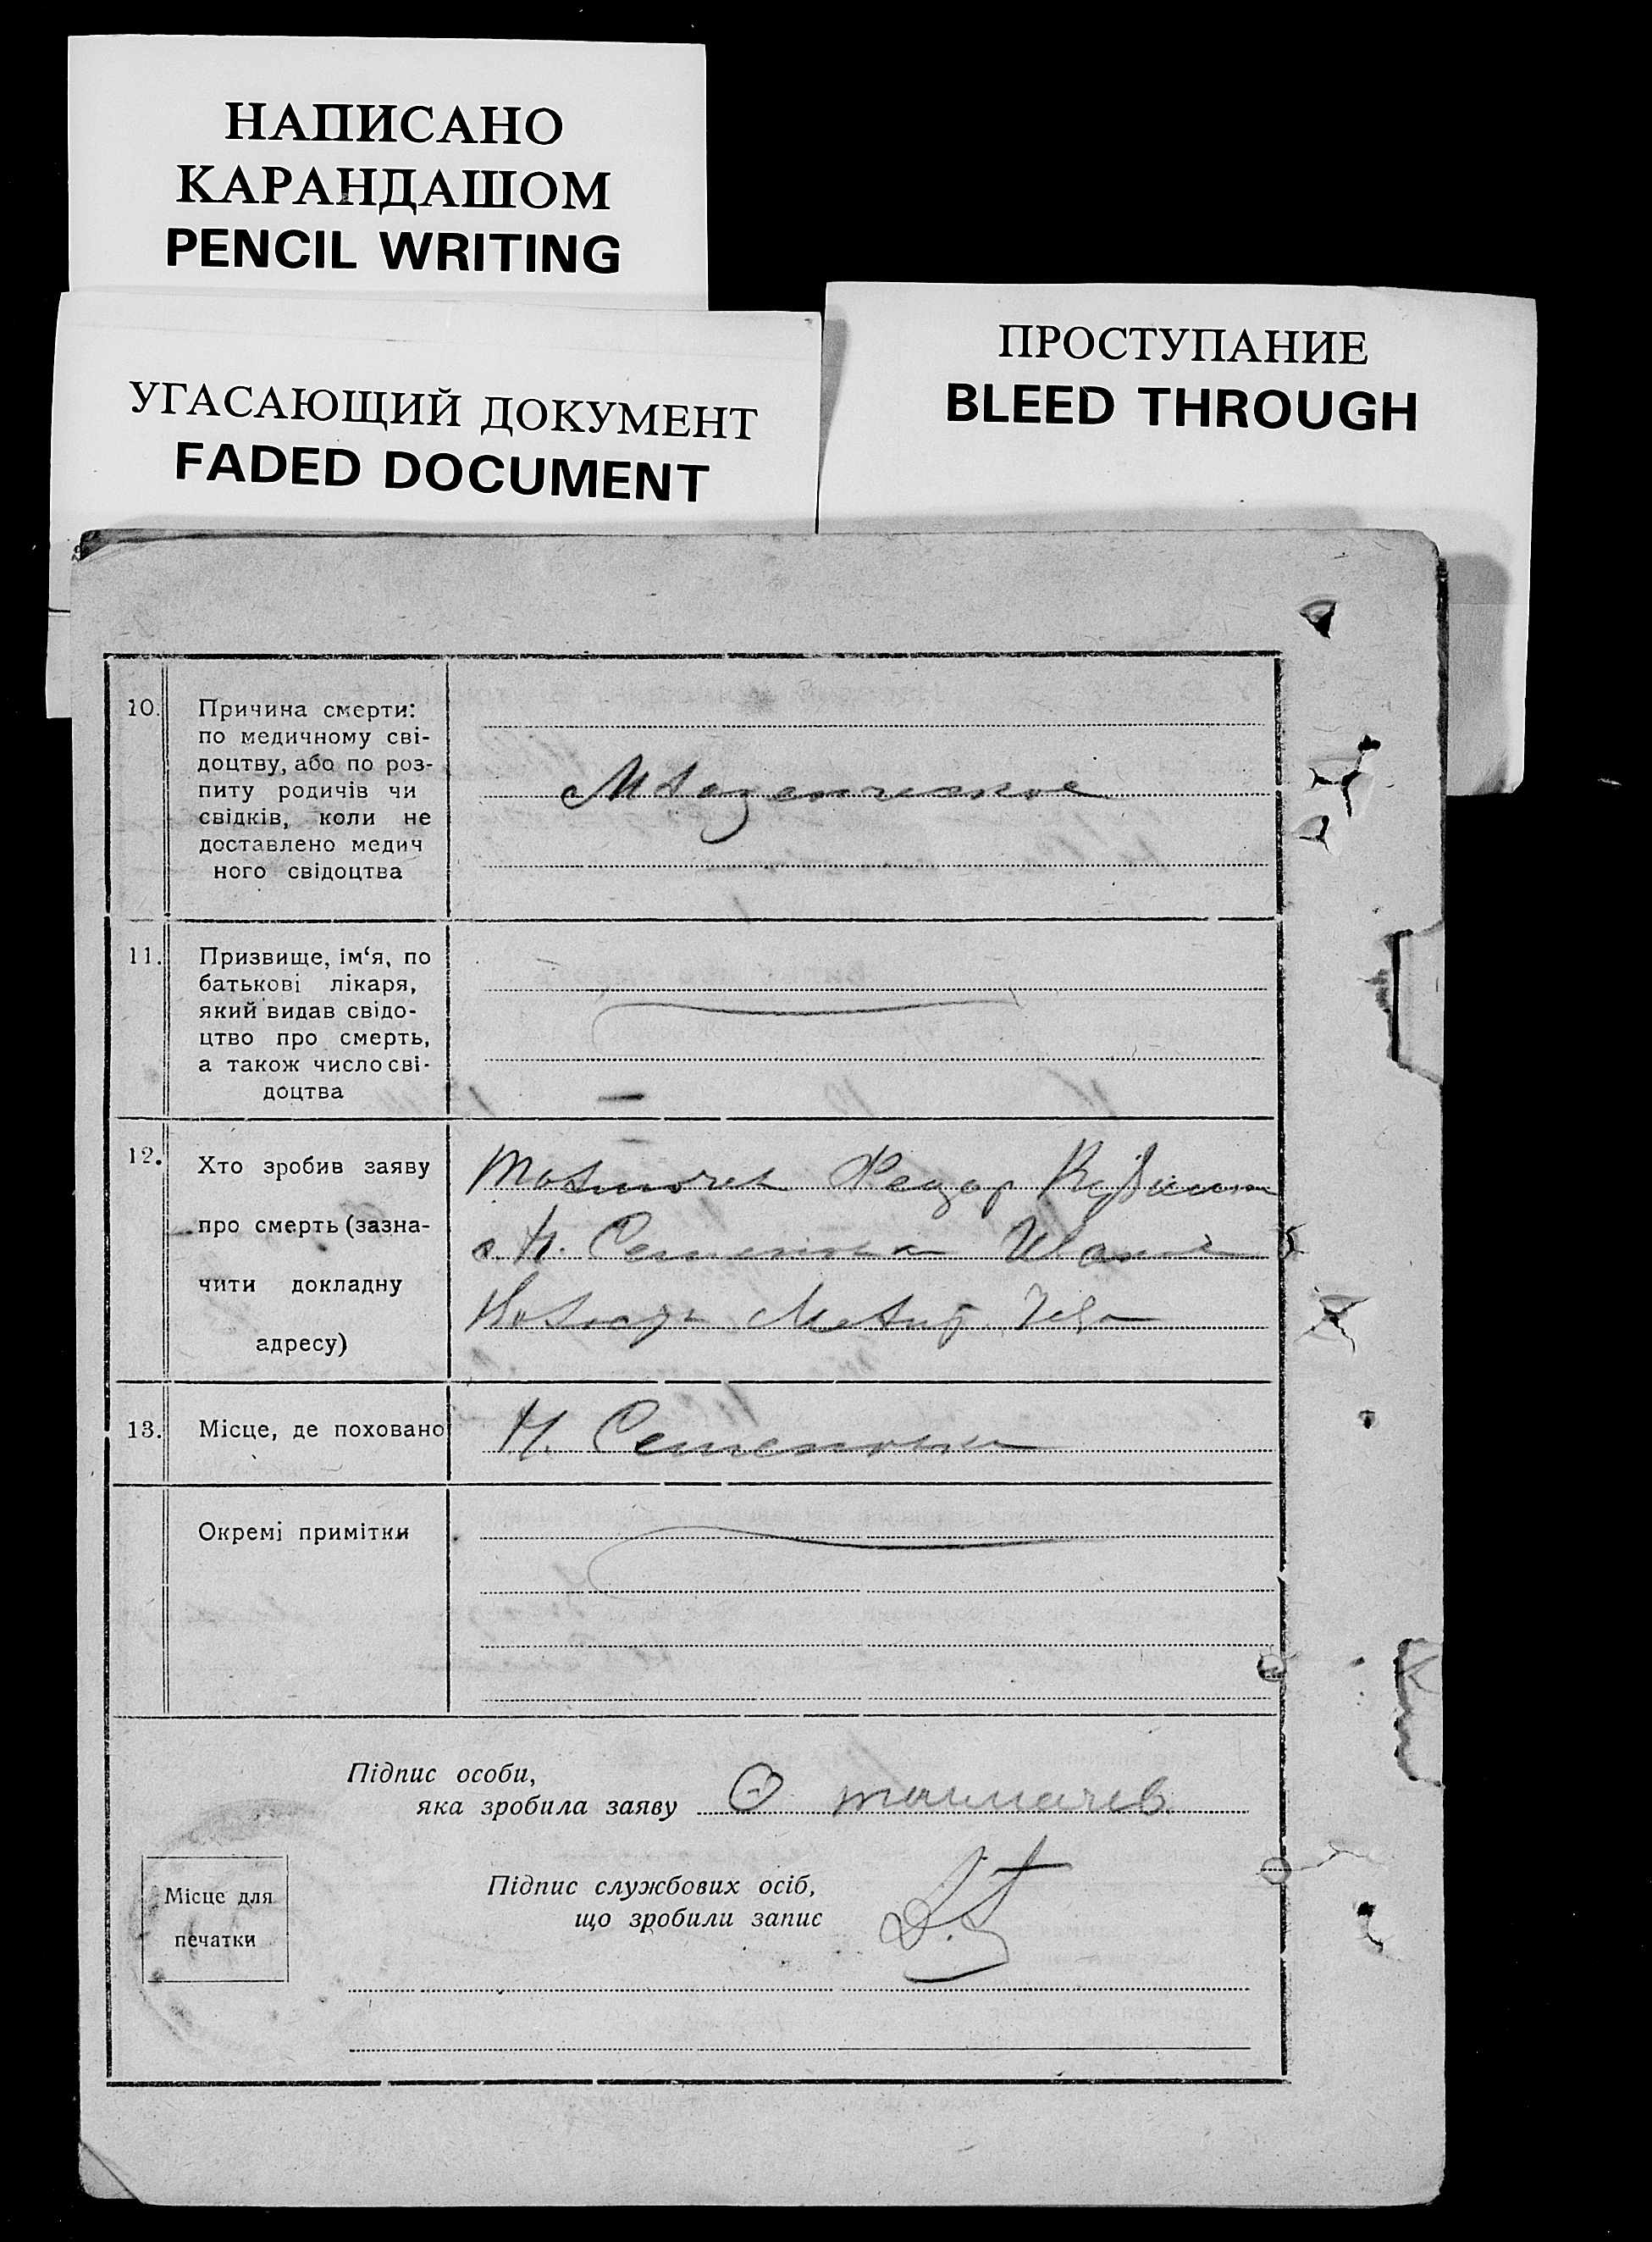 НАПИСАНО
КАРАНДАШОМ
PENCIL WRITING
УГАСАЮЩИЙ ДОКУМЕНТ
FADED DOCUMENT
ПРОСТУПАНИЕ
BLEED THROUGH
10. Причина смерти:
по медичному сві-
доцтву, або по роз-
питу родичів чи
свідків, коли не
доставлено медич
ного свідоцтва
11. Призвище, ім‘я, по
батькові лікаря,
який видав свідо-
цтво про смерть,
а також число сві-
доцтва
12. Хто зробив заяву
про смерть (зазна-
чити докладну
адресу)
Федор
Н. Семеновка
13. Місце, де поховано
Н. Семеновка
Окремі примітки
Підпис особи,
яка зробила заяву
Підпис службових осіб,
що зробили запис
Місце для
печатки